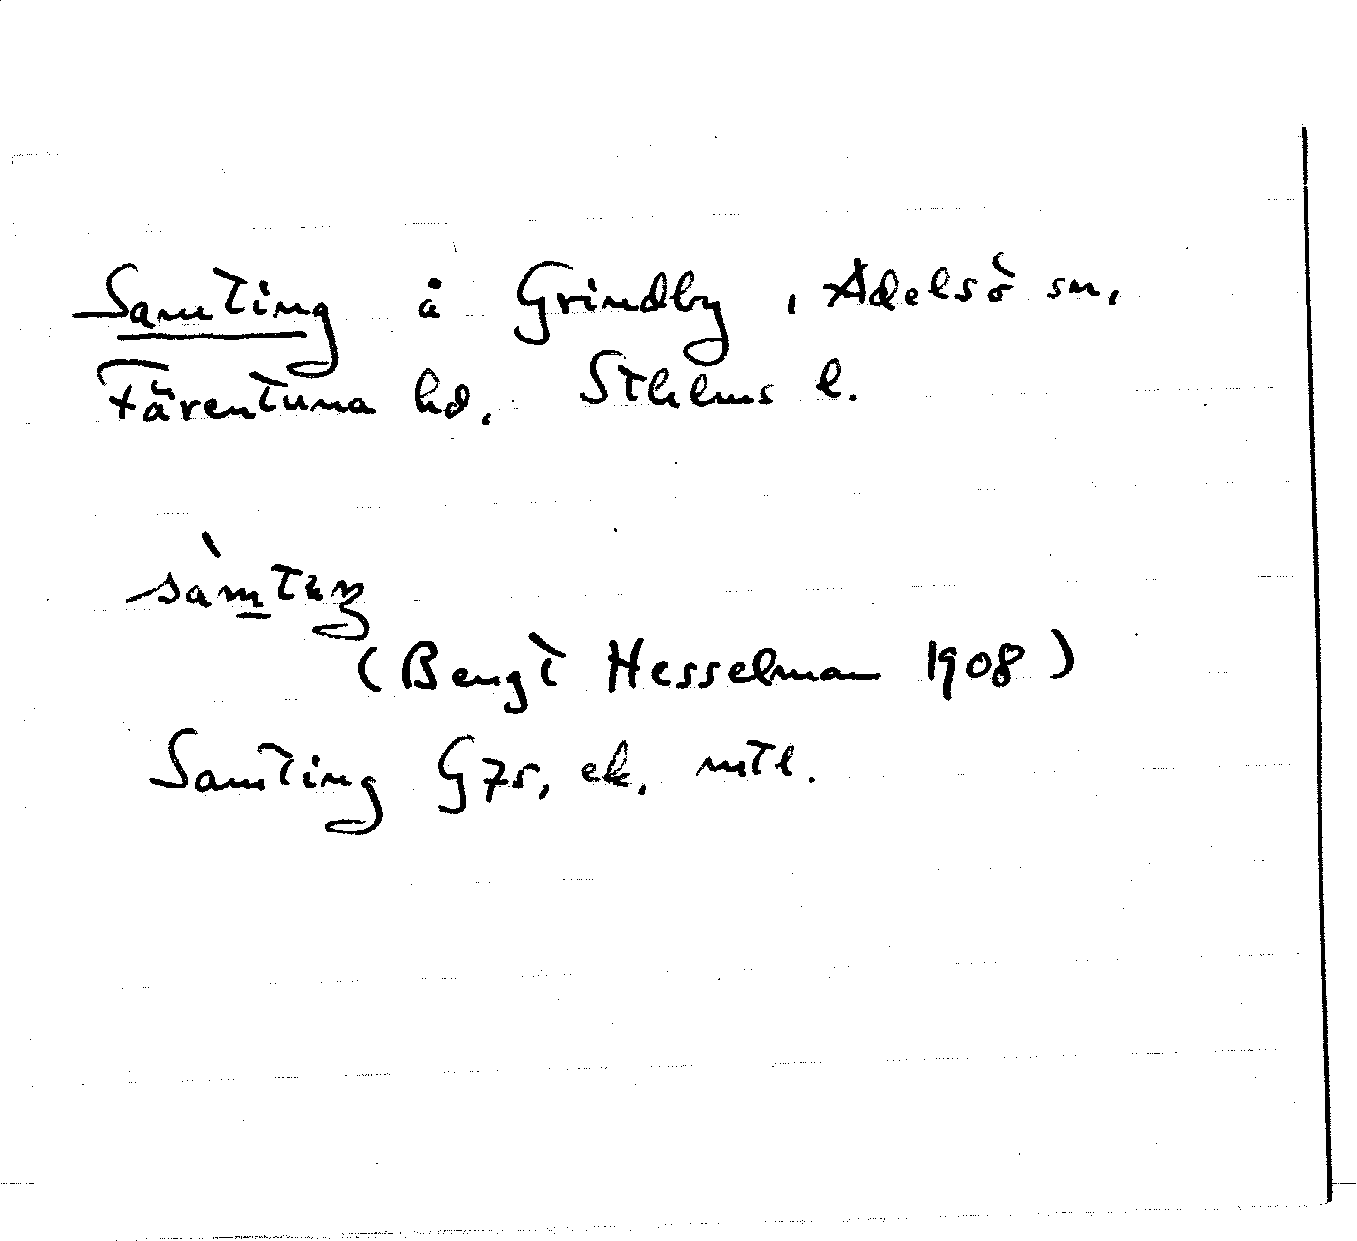 Samting å Grindby, Adelsö sn,
Färentuna hd. Sthlms l.
(Bengt Hesselman 1908)
Samting G75, ek, mtl.